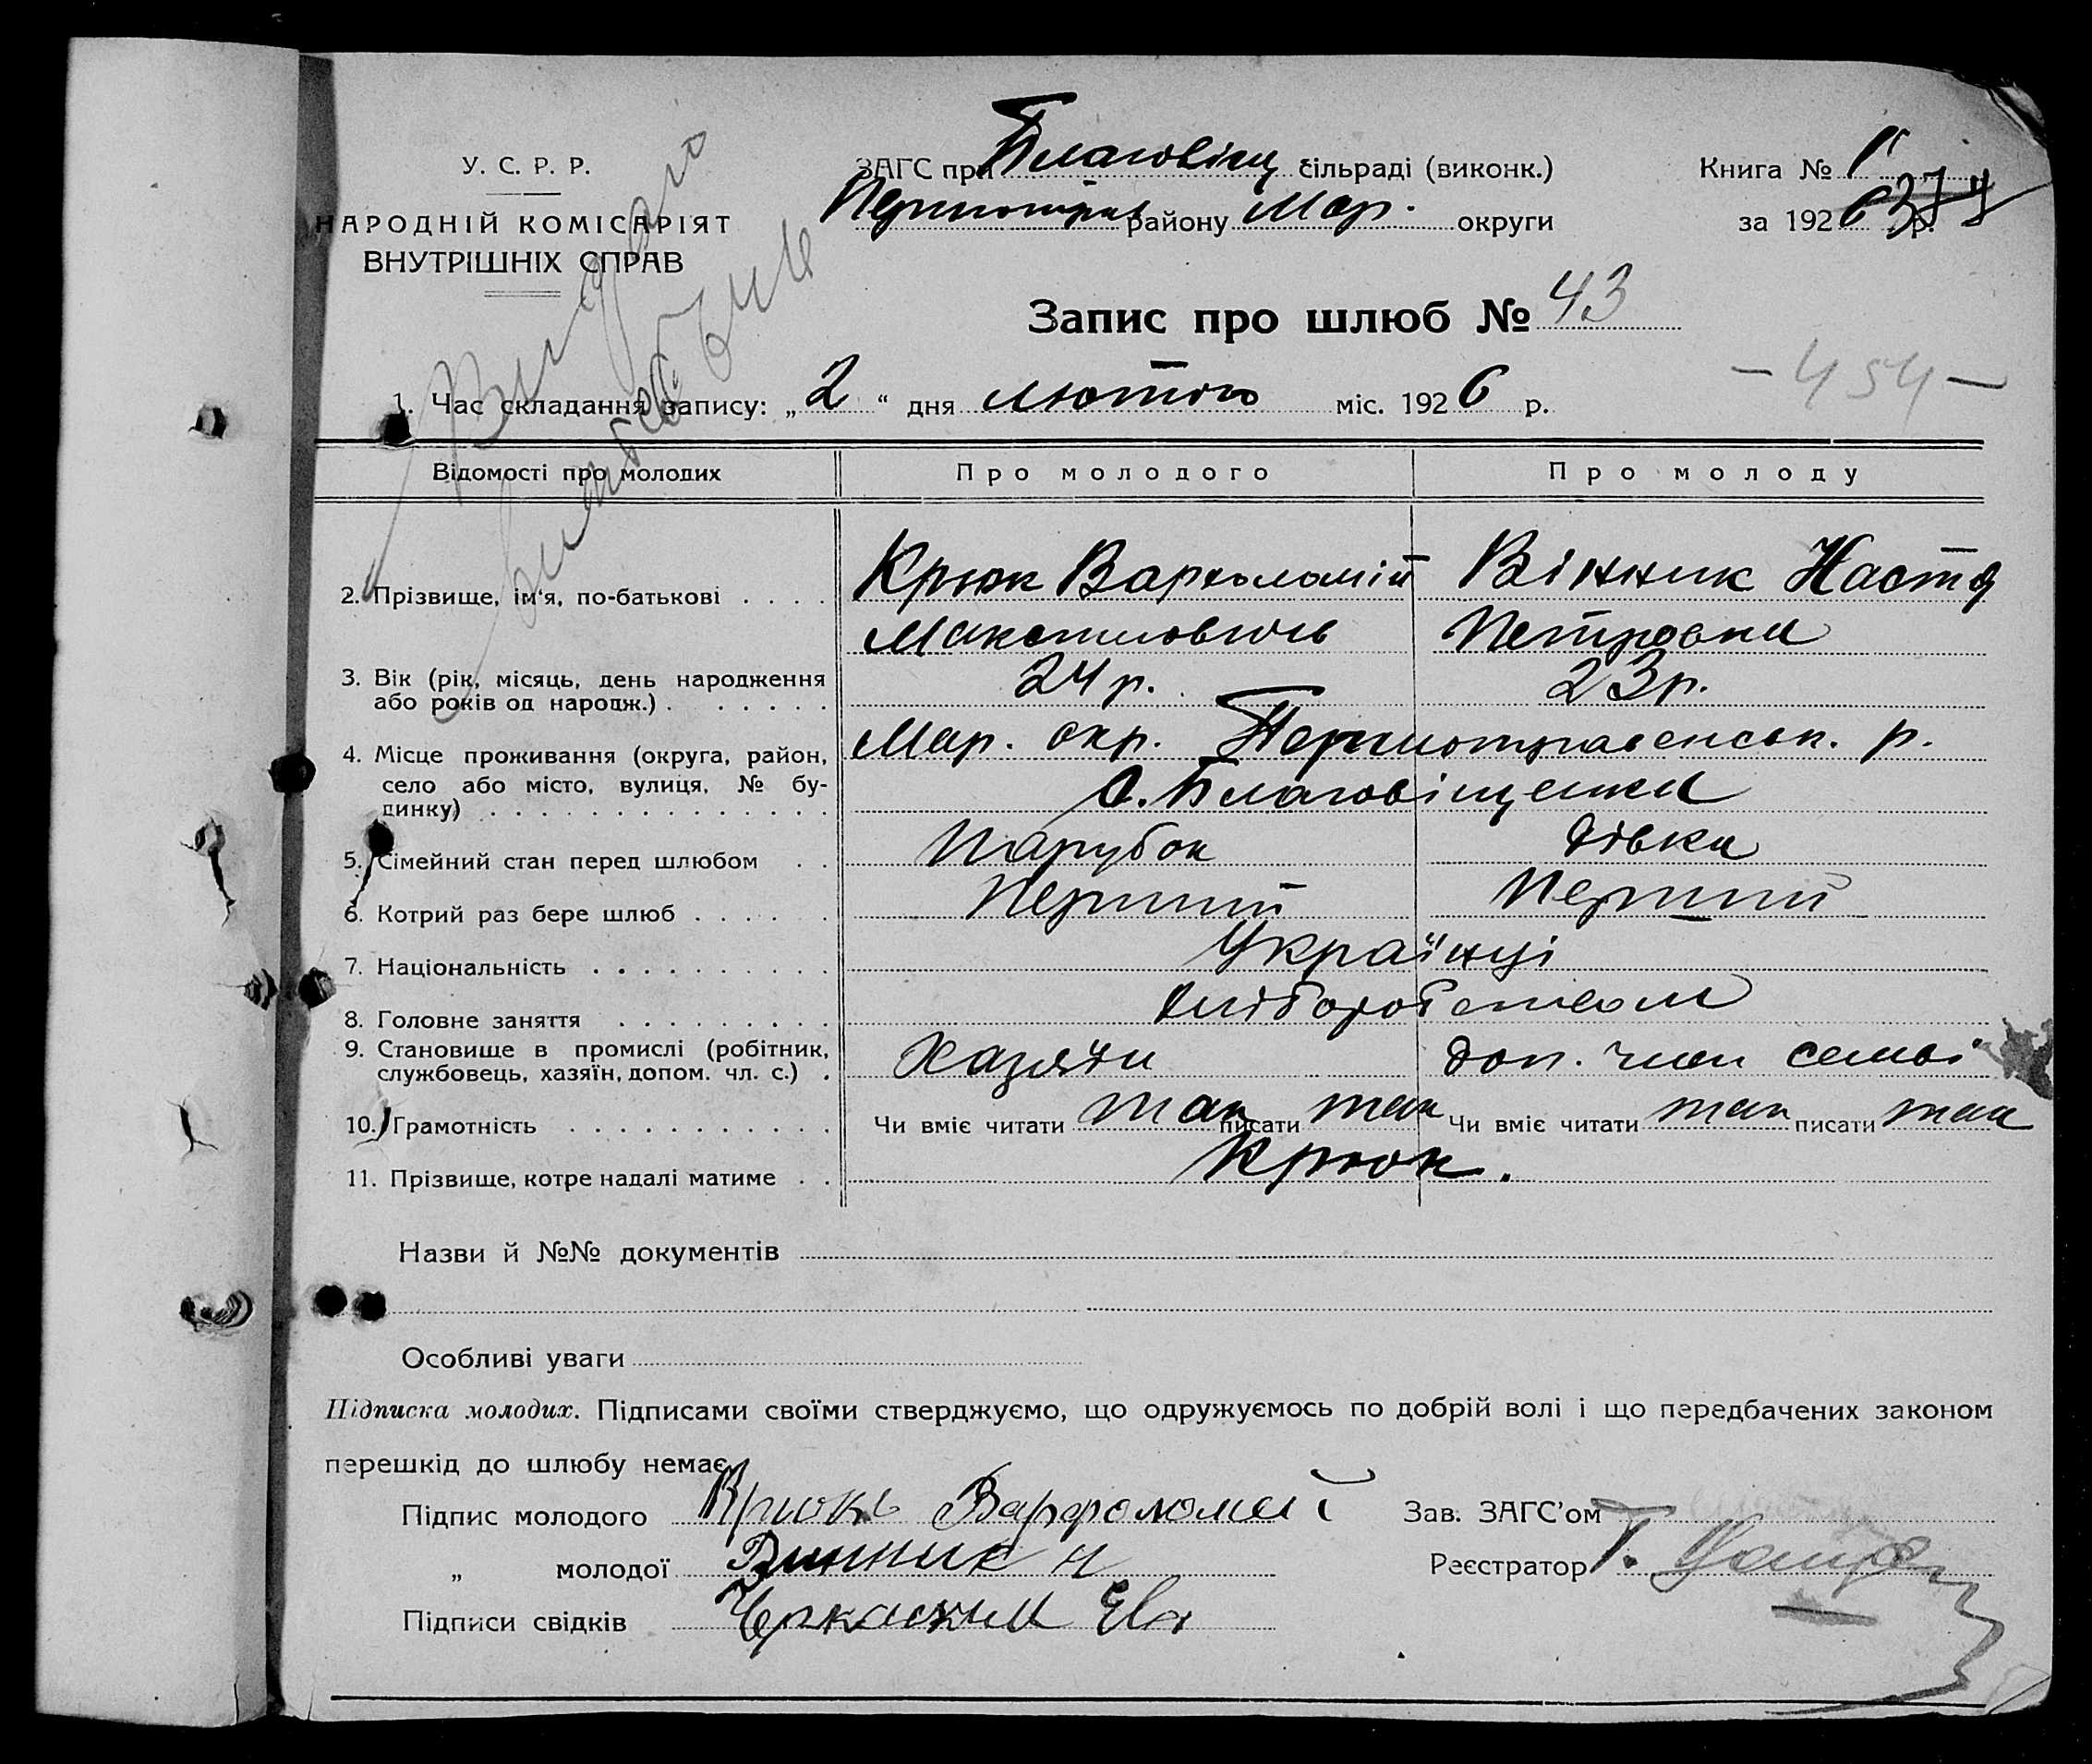 У. С. Р. Р.
НАРОДНІЙ КОМІСАРІЯТ
ВНУТРІШНІХ СПРАВ
ЗАГС при Благовіщ сільраді (виконк.)
Першотрав району Мар. округи
Книга № 1
за 1926 р.
374
Видано
Запис про шлюб № 43
— 454 —
1. Час складання запису: „2“ дня лютого міс. 1926 р.
Відомості про молодих Про молодого Про молоду
2. Прізвище, ім'я, по-батькові . . . . Крюк Вархоломій Вінник Настя
Максимовичь Петровна
3. Вік (рік, місяць, день народження
або років од народж.) . . . . . . 24 р. 23 р.
4. Місце проживання (округа, район,
село або місто, вулиця, № бу-
динку) . . . . . . . . . . . . . .
Мар. окр. Першотравенськ. р.
С. Благовіщенка
5. Сімейний стан перед шлюбом . . Парубок дівка
6. Котрий раз бере шлюб . . . . . Перший Перший
7. Національність . . . . . . . . . . Українці
8. Головне заняття . . . . . . . . . Хліборобством
9. Становище в промислі (робітник,
службовець, хазяїн, допом. чл. с.) . Хазяїн доп. член семьі
10. Грамотність . . . . . . . . . . . Чи вміє читати так писати так Чи вміє читати так писати так
11. Прізвище, котре надалі матиме . . Крюк.
Назви й №№ документів
Особливі уваги
Підписка молодих. Підписами своїми стверджуємо, що одружуємось по добрій волі і що передбачених законом
перешкід до шлюбу немає.
Підпис молодого Крюкь Варфоломей
„ молодої Винник Н
Підписи свідків
Зав. ЗАГС'ом
Реєстратор Г.